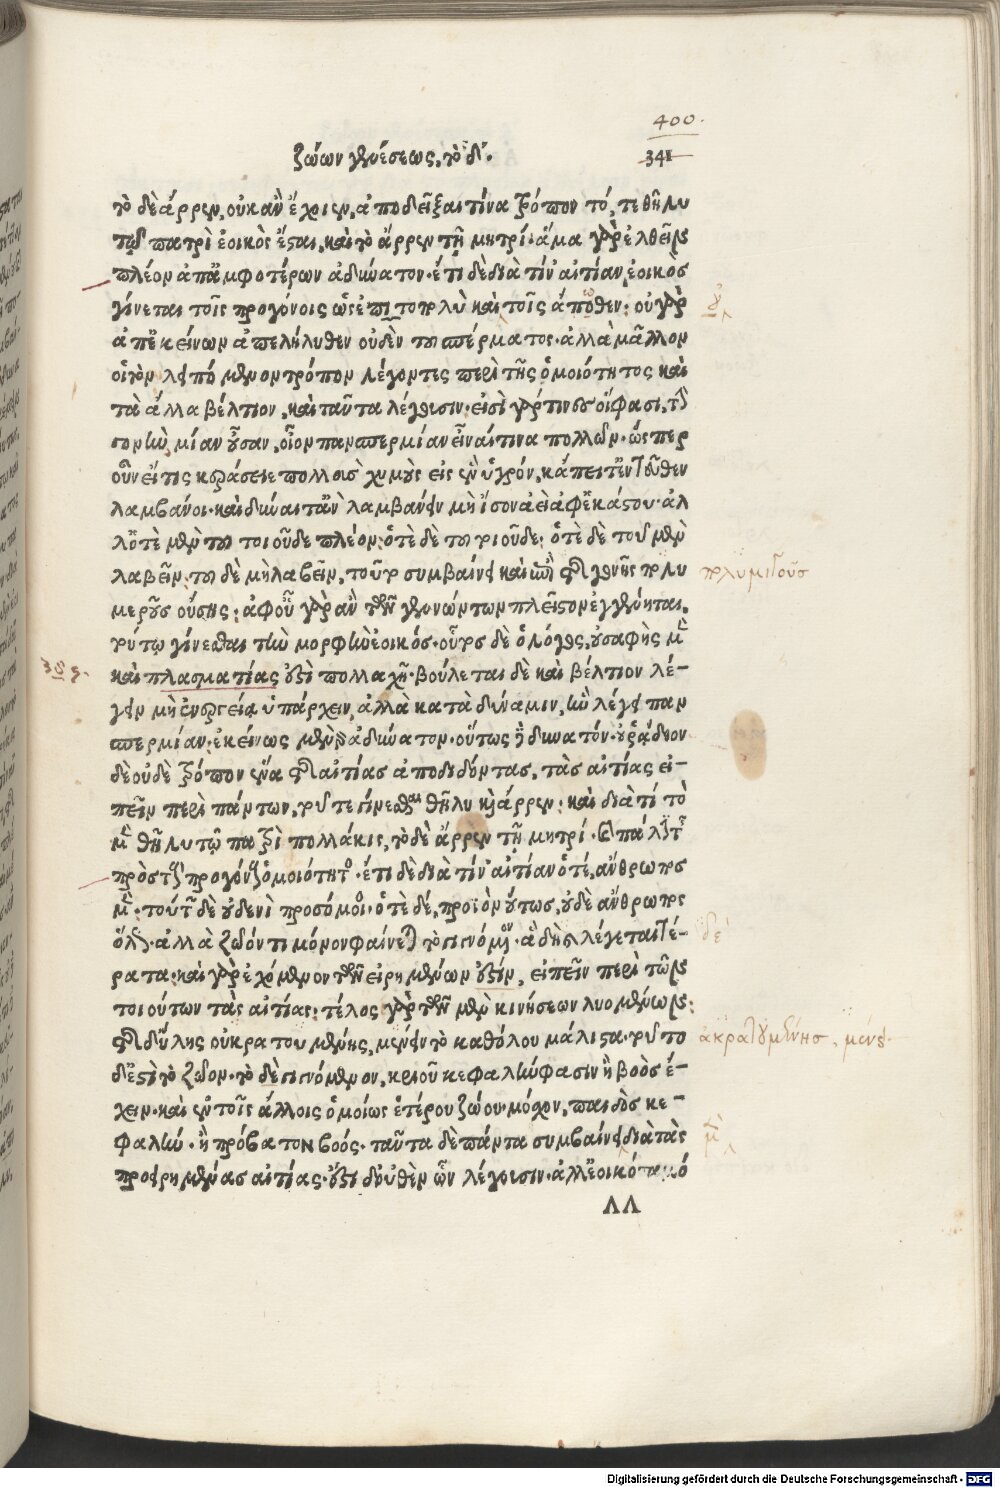 400.
ζώων γενέσεως, τὸ δ΄.
341
τὸ δὲ ἄρρεν, οὐκ ἂν ἔχοιεν, ἀποδεῖξαι τίνα τρόπον τό, τε θῆλυ
τῷ πατρὶ ἐοικὸς ἔσται, καὶ τὸ ἄρρεν τῇ μητρί· ἅμα γὰρ ἐλθεῖν
πλέον ἀπ' ἀμφοτέρων ἀδύνατον· ἔτι δὲ διὰ τίν' αἰτίαν, ἐοικὸς
γίνεται τοῖς προγόνοις ὡς ἐπὶ τοπολὺ καὶ τοῖς ἄποθεν· οὐ γὰρ
ἀπ' ἐκείνων ἀπελήλυθεν οὐδὲν τοῦ σπέρματος· ἀλλὰ μᾶλλον
οἱ τὸν λειπόμενον τρόπον λέγοντες περὶ τῆς ὁμοιότητος καὶ
τὰ ἄλλα βέλτιον, καὶ ταῦτα λέγουσιν· εἰσὶ γάρ τινες οἵ φασι, τὴν
γονὴν μίαν οὖσαν, οἷον πανσπερμίαν εἶναί τινα πολλῶν· ὥσπερ
οὖν εἴ τις κεράσειε πολλοὺς χυμοὺς εἰς ἓν ὑγρόν, κἄπειτ' ἐντεῦθεν
λαμβάνοι· καὶ δύναιτ' ἂν λαμβάνειν μὴ ἴσον ἀεὶ ἀφ' ἑκάστου· ἀλ
λ' ὁτὲ μὲν τοῦ τοιοῦδε πλέον· ὁτὲ δὲ τοῦ τοιοῦδε· ὁτὲ δὲ τοῦ μὲν
λαβεῖν, τοῦ δὲ μὴ λαβεῖν, τοῦτο συμβαίνει καὶ ἐπὶ τῆς γονῆς πολυ
πολυμιγοῦς
μεροῦς οὔσης· ἀφ' οὗ γὰρ ἂν τῶν γεννώντων πλεῖστον ἐγγένηται,
τούτῳ γίνεσθαι τὴν μορφὴν ἐοικός· οὗτος δὲ ὁ λόγος, οὐ σαφὴς μὲν
καὶ πλασματίας ἐστὶ πολλαχῇ· βούλεται δὲ καὶ βέλτιον λέ-
γειν μὴ ἐνεργείᾳ ὑπάρχειν, ἀλλὰ κατὰ δύναμιν, ἣν λέγει παν
σπερμίαν· ἐκείνως μὲν γὰρ ἀδύνατον· οὕτως δὲ δυνατόν· οὐ ῥᾴδιον
δὲ οὐδὲ τρόπον ἕνα τῆς αἰτίας ἀποδιδόντας, τὰς αἰτίας εἰ-
πεῖν περὶ πάντων, τοῦ τε γίνεσθαι θῆλυ καὶ ἄρρεν· καὶ διὰ τί τὸ
μὲν θῆλυ τῷ πατρὶ πολλάκις, τὸ δὲ ἄρρεν τῇ μητρί· καὶ πάλιν τῆς
πρὸς τοὺς προγόνους ὁμοιότητος· ἔτι δὲ διὰ τίν' αἰτίαν ὁτὲ, ἄνθρωπος
μὲν· τούτων δὲ οὐδενὶ προσόμοιος· ὁτὲ δέ, προϊὸν οὕτως, οὐδὲ ἄνθρωπος
ὅλως· ἀλλὰ ζῷόν τι μόνον φαίνεται τὸ γινόμενον· ἃ δὴ λέγεται τέ-
δὲ
ρατα· καὶ γὰρ ἐχόμενον τῶν εἰρημένων ἐστίν, εἰπεῖν περὶ τῶν
τοιούτων τὰς αἰτίας· τέλος γὰρ τῶν μὲν κινήσεων λυομένων·
τῆς δ' ὕλης οὐ κρατουμένης, μένειν τὸ καθόλου μάλιστα· τοῦτο
ἀκρατουμένης, μένει.
δ' ἐστὶ τὸ ζῷον· τὸ δὲ γινόμενον, κριοῦ κεφαλήν φασιν ἢ βοὸς ἔ-
χειν· καὶ ἐν τοῖς ἄλλοις ὁμοίως ἑτέρου ζώου· μόσχον, παιδὸς κε-
φαλήν· ἢ πρόβατον βοός· ταῦτα δὲ πάντα συμβαίνει διὰ τὰς
μὲν
προειρημένας αἰτίας· ἔστι δ' οὐθὲν ὧν λέγουσιν· ἀλλ' ἐοικότα μό
ΛΛ
Digitalisierung gefördert durch die Deutsche Forschungsgemeinschaft - DFG